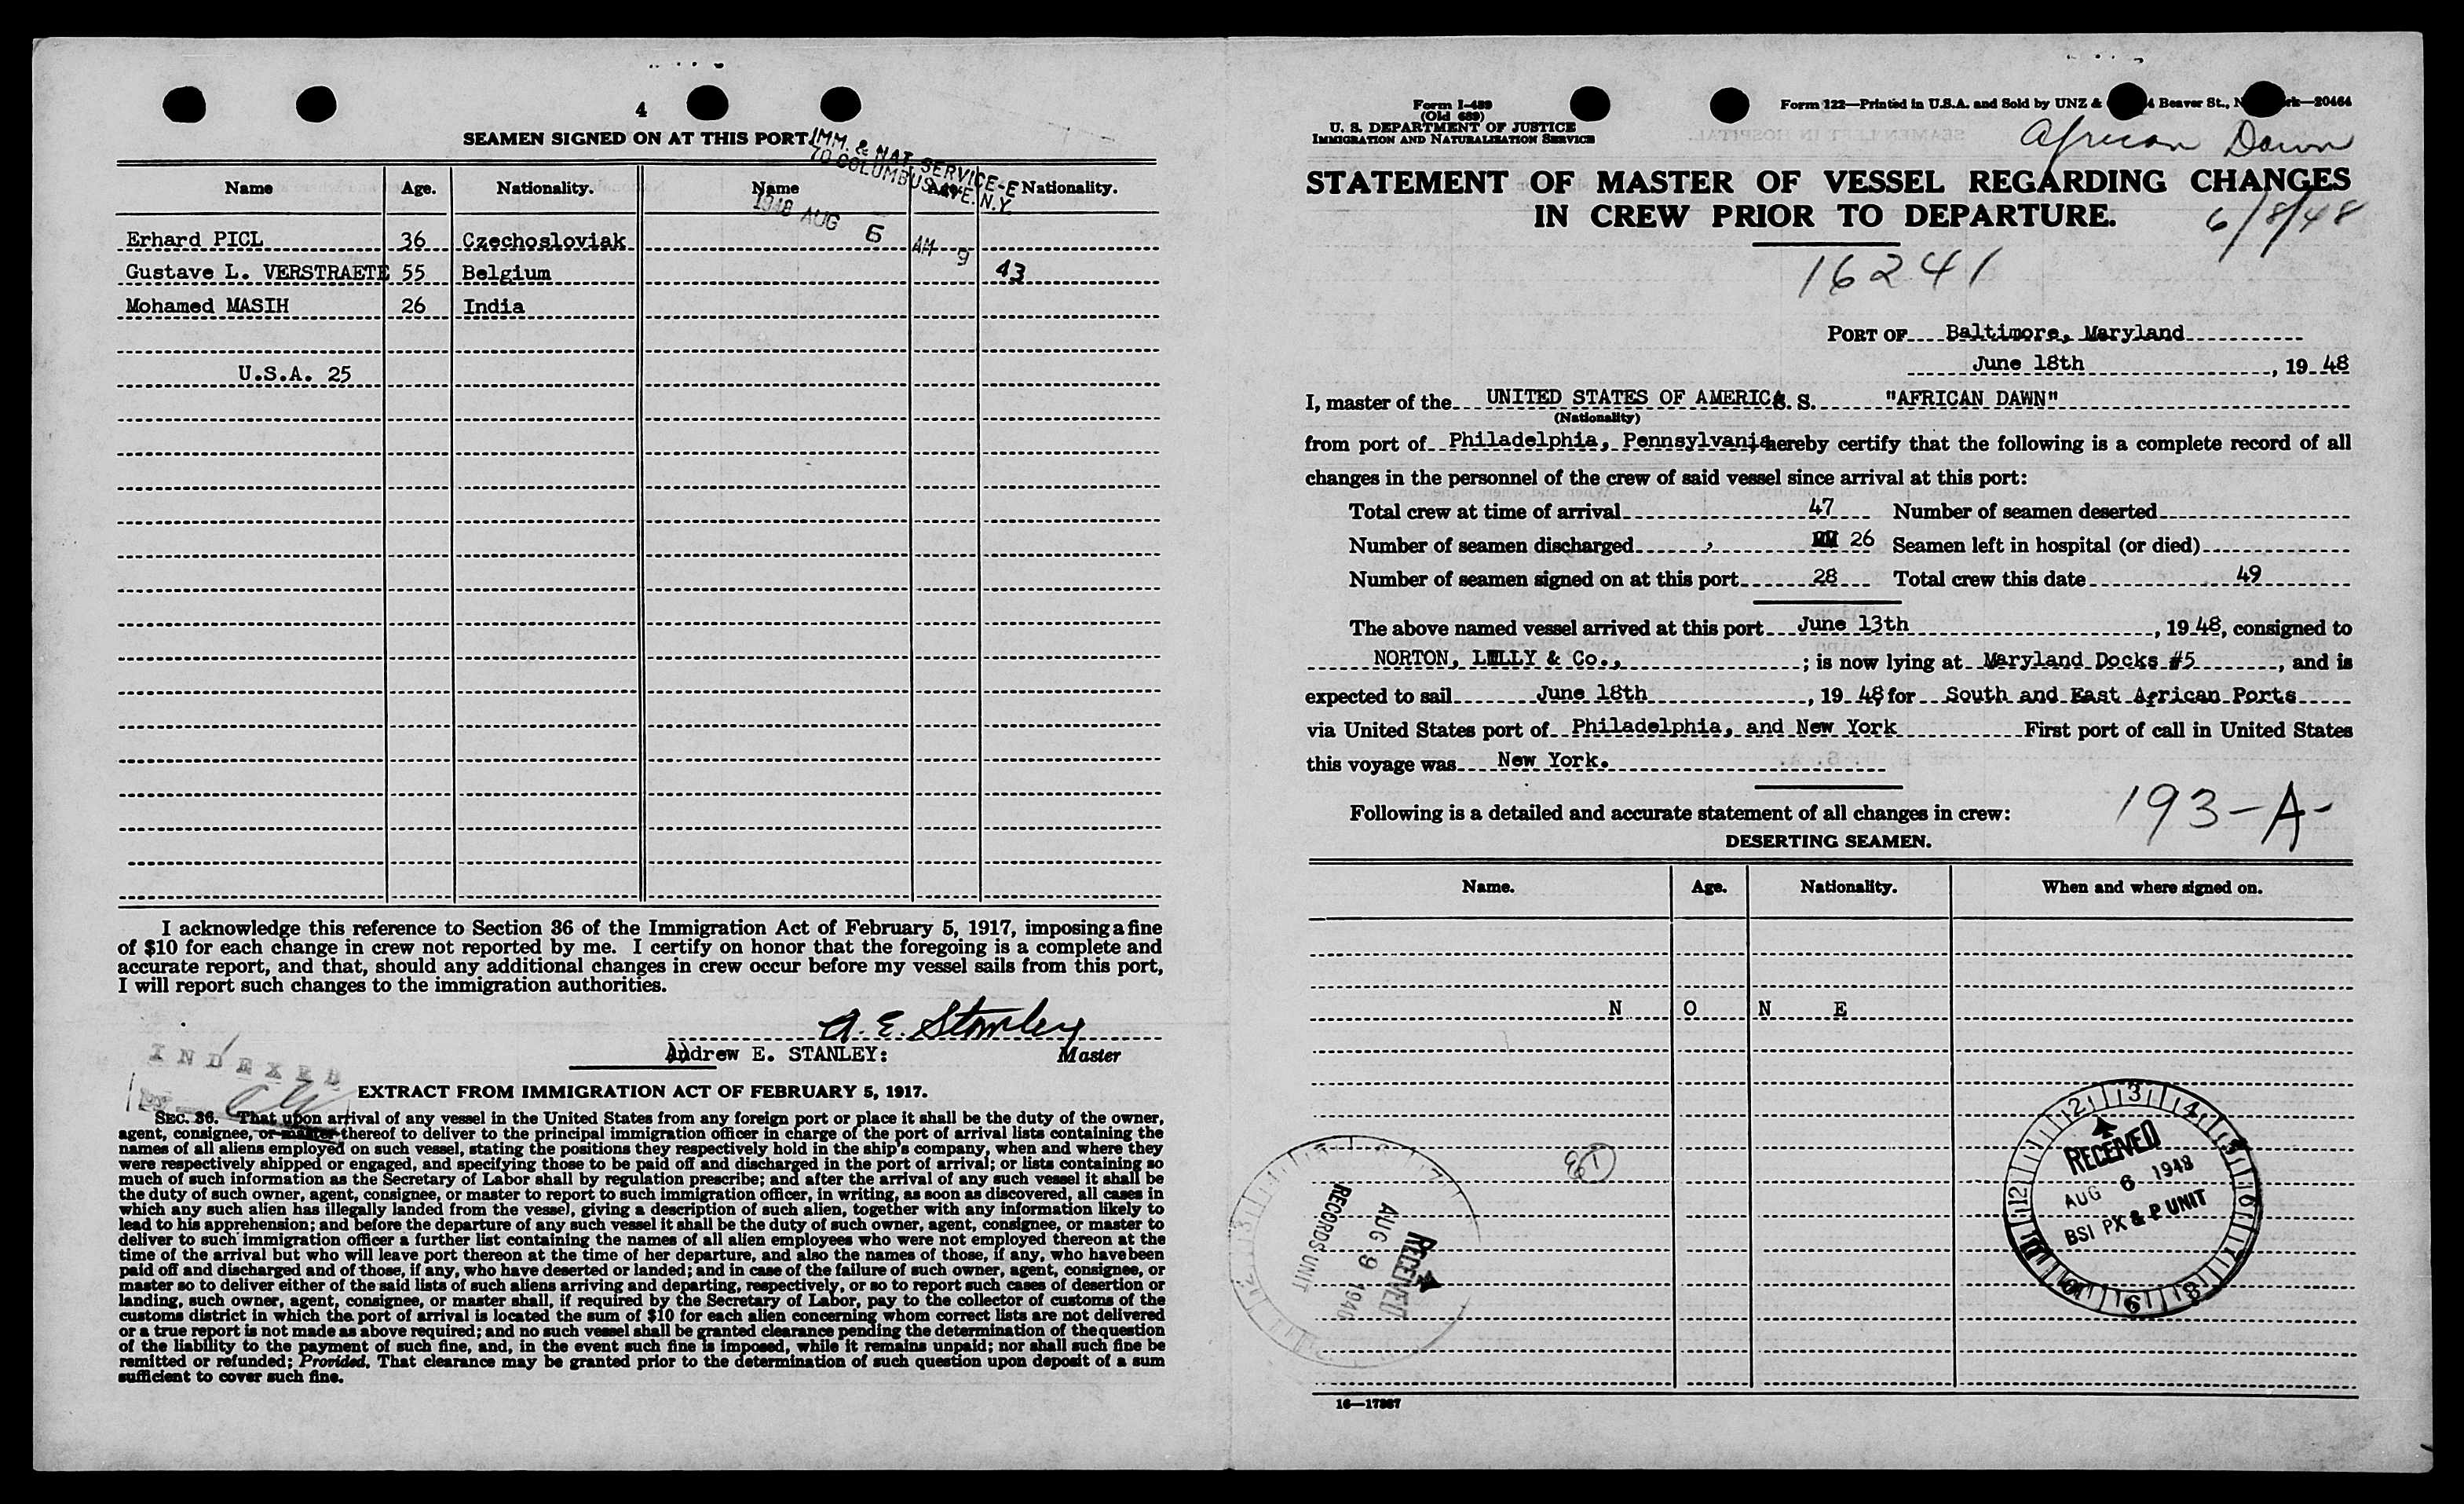 4
SEAMEN SIGNED ON AT THIS PORT
IMM. & NAT. SERVICE-E
70 COLUMBUS AVE. N.Y.
1948 AUG 6 AM 9 43
Name Age. Nationality. Name Age. Nationality.
Erhard PICL 36 Czechosloviak
Gustave L. VERSTRAETE 55 Belgium
Mohamed MASIH 26 India
U.S.A. 25
I acknowledge this reference to Section 36 of the Immigration Act of February 5, 1917, imposing a fine
of $10 for each change in crew not reported by me. I certify on honor that the foregoing is a complete and
accurate report, and that, should any additional changes in crew occur before my vessel sails from this port,
I will report such changes to the immigration authorities.
A. E. Stanley
Andrew E. STANLEY: Master
INDEXED
EXTRACT FROM IMMIGRATION ACT OF FEBRUARY 5, 1917.
SEC. 36. That upon arrival of any vessel in the United States from any foreign port or place it shall be the duty of the owner,
agent, consignee, or master thereof to deliver to the principal immigration officer in charge of the port of arrival lists containing the
names of all aliens employed on such vessel, stating the positions they respectively hold in the ship's company, when and where they
were respectively shipped or engaged, and specifying those to be paid off and discharged in the port of arrival; or lists containing so
much of such information as the Secretary of Labor shall by regulation prescribe; and after the arrival of any such vessel it shall be
the duty of such owner, agent, consignee, or master to report to such immigration officer, in writing, as soon as discovered, all cases in
which any such alien has illegally landed from the vessel, giving a description of such alien, together with any information likely to
lead to his apprehension; and before the departure of any such vessel it shall be the duty of such owner, agent, consignee, or master to
deliver to such immigration officer a further list containing the names of all alien employees who were not employed thereon at the
time of the arrival but who will leave port thereon at the time of her departure, and also the names of those, if any, who have been
paid off and discharged and of those, if any, who have deserted or landed; and in case of the failure of such owner, agent, consignee, or
master so to deliver either of the said lists of such aliens arriving and departing, respectively, or so to report such cases of desertion or
landing, such owner, agent, consignee, or master shall, if required by the Secretary of Labor, pay to the collector of customs of the
customs district in which the port of arrival is located the sum of $10 for each alien concerning whom correct lists are not delivered
or a true report is not made as above required; and no such vessel shall be granted clearance pending the determination of the question
of the liability to the payment of such fine, and, in the event such fine is imposed, while it remains unpaid; nor shall such fine be
remitted or refunded; Provided, That clearance may be granted prior to the determination of such question upon deposit of a sum
sufficient to cover such fine.
Form I-489
(Old 689)
U. S. DEPARTMENT OF JUSTICE
IMMIGRATION AND NATURALIZATION SERVICE
Form 122—Printed in U.S.A. and Sold by UNZ & Beaver St., 20464
African Dawn
STATEMENT OF MASTER OF VESSEL REGARDING CHANGES
IN CREW PRIOR TO DEPARTURE.
6/8/48
16241
PORT OF Baltimore, Maryland
June 18th, 1948
I, master of the UNITED STATES OF AMERICA S. S. "AFRICAN DAWN"
(Nationality)
from port of Philadelphia, Pennsylvania hereby certify that the following is a complete record of all
changes in the personnel of the crew of said vessel since arrival at this port:
Total crew at time of arrival 47 Number of seamen deserted
Number of seamen discharged 26 Seamen left in hospital (or died)
Number of seamen signed on at this port 28 Total crew this date 49
The above named vessel arrived at this port June 13th, 1948, consigned to
NORTON, LILLY & Co., ; is now lying at Maryland Docks #5, and is
expected to sail June 18th, 1948 for South and East African Ports
via United States port of Philadelphia, and New York First port of call in United States
this voyage was New York.
193-A-
Following is a detailed and accurate statement of all changes in crew:
DESERTING SEAMEN.
Name. Age. Nationality. When and where signed on.
N O N E
RECEIVED
AUG 9 1948
RECORDS UNIT
RECEIVED
AUG 6 1948
BSI PX & P UNIT
16—17367